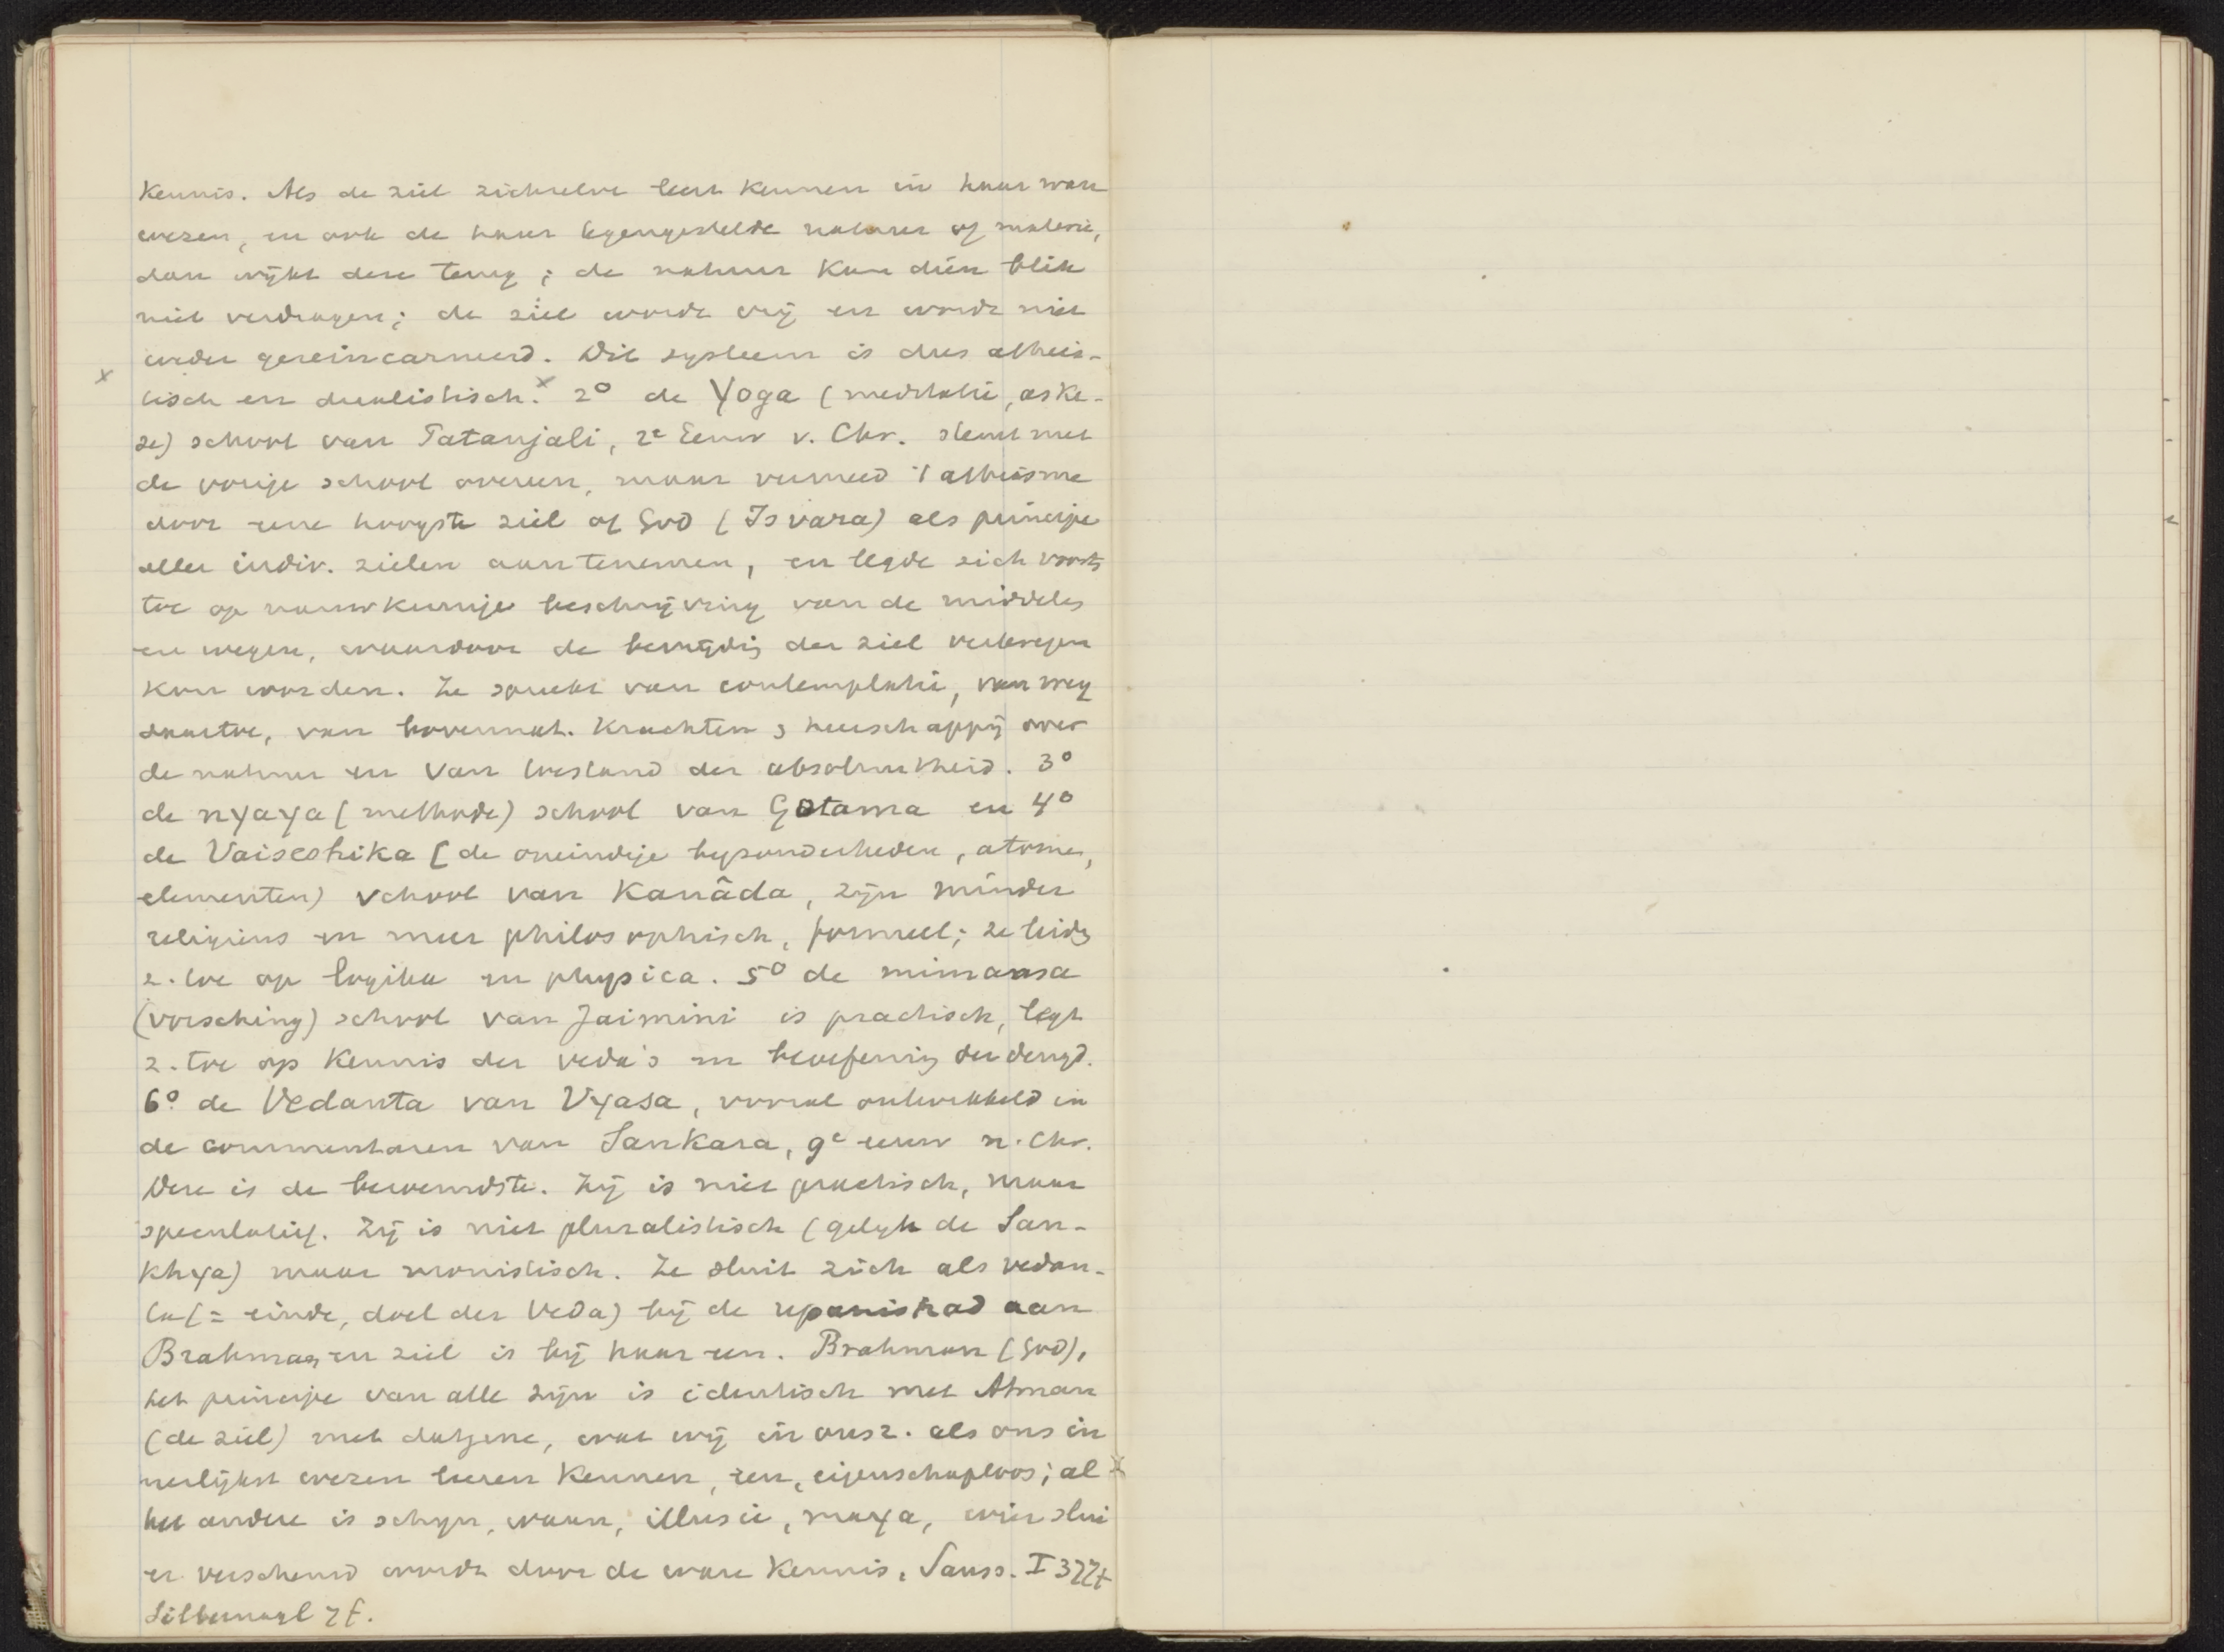 kennis. Als de ziel zichzelve leert kennen in haar ware
wezen, en ook de haar tegengestelde natuur of materie,
dan wijkt deze terug; de natuur kan dien blik
niet verdragen; de ziel wordt vrij en wordt niet
weder gereincarneerd. Dit systeem is dus atheis-
x tisch en dualistisch. x 2° de Yoga (meditatie, aske-
se) school van Patanjali, 2e Eeuw v. Chr. stemt met
de vorige school overeen, maar vermeed 't atheisme
door eene hoogste ziel of God (Isvara) als principe
aller indiv. zielen aantenemen, en legde zich voorts
toe op nauwkeurige beschrijving van de middelen
en wegen, waardoor de bevrijding der ziel verkregen
kan worden. Ze spreekt van contemplatie, van weg
daartoe, van bovennat. krachten & heerschappij over
de natuur en van toestand der absoluutheid. 3°
de nyaya (methode) school van Gotama en 4°
de Vaiseshika (de oneindige byzonderheden, atomen,
elementen) school van Kanâda, zijn minder
religieus en meer philosophisch, formeel; ze leiden
z. toe op logika en physica. 5° de mimansa
(vorsching) school van Jaimini is practisch, legt
z. toe op kennis der veda's en beoefening der deugd.
6° de Vedanta van Vyasa, vooral ontwikkeld in
de commentaren van Sankara, 9e eeuw n. Chr.
Deze is de beroemdste. Zij is niet practisch, maar
speculatief. Zij is niet pluralistisch (gelyk de San-
khya) maar monistisch. Ze sluit zich als vedan-
ta (= einde, doel der Veda) bij de upanishad aan
Brahman en ziel is bij haar een. Brahman (God),
het principe van alle zijn is identisch met Atman
(de ziel) met datgene, wat wij in onsz. als ons in
nerlijkst wezen leeren kennen, een, eigenschaploos; al
het andere is schyn, waan, illusie, maya, wier slui
er verscheurd wordt door de ware kennis. Sauss. I 327t
Silbernagl 7f.